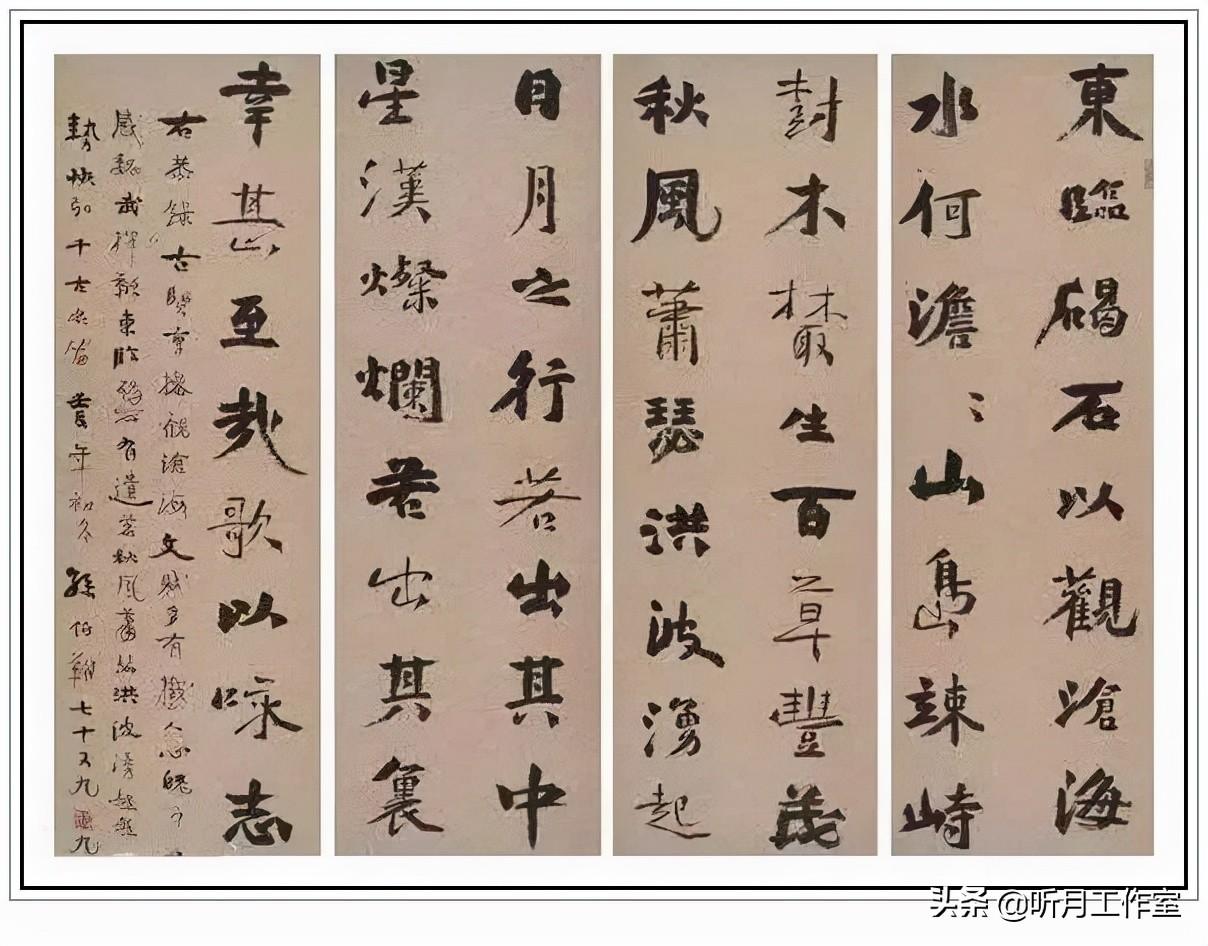 東臨碣石以觀滄海
水何澹〻山島竦峙
樹木叢生百草豐茂
秋風蕭瑟洪波湧起
日月之行若出其中
星漢燦爛若出其裏
幸甚至哉歌以咏志
右恭錄古賢曹操觀滄海文賦多有撼人心魄之
感魏武揮鞭東臨碣石有遺篇秋風蕭瑟洪波湧起
勢恢弘千古絕唱壬辰年初冬孫伯翔七十又九
头条 @听月工作室